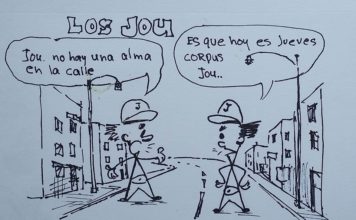 LOS JOU
Jou. no hay una alma
en la calle
Es que hoy es jueves
CORPUS
Jou..
J
J